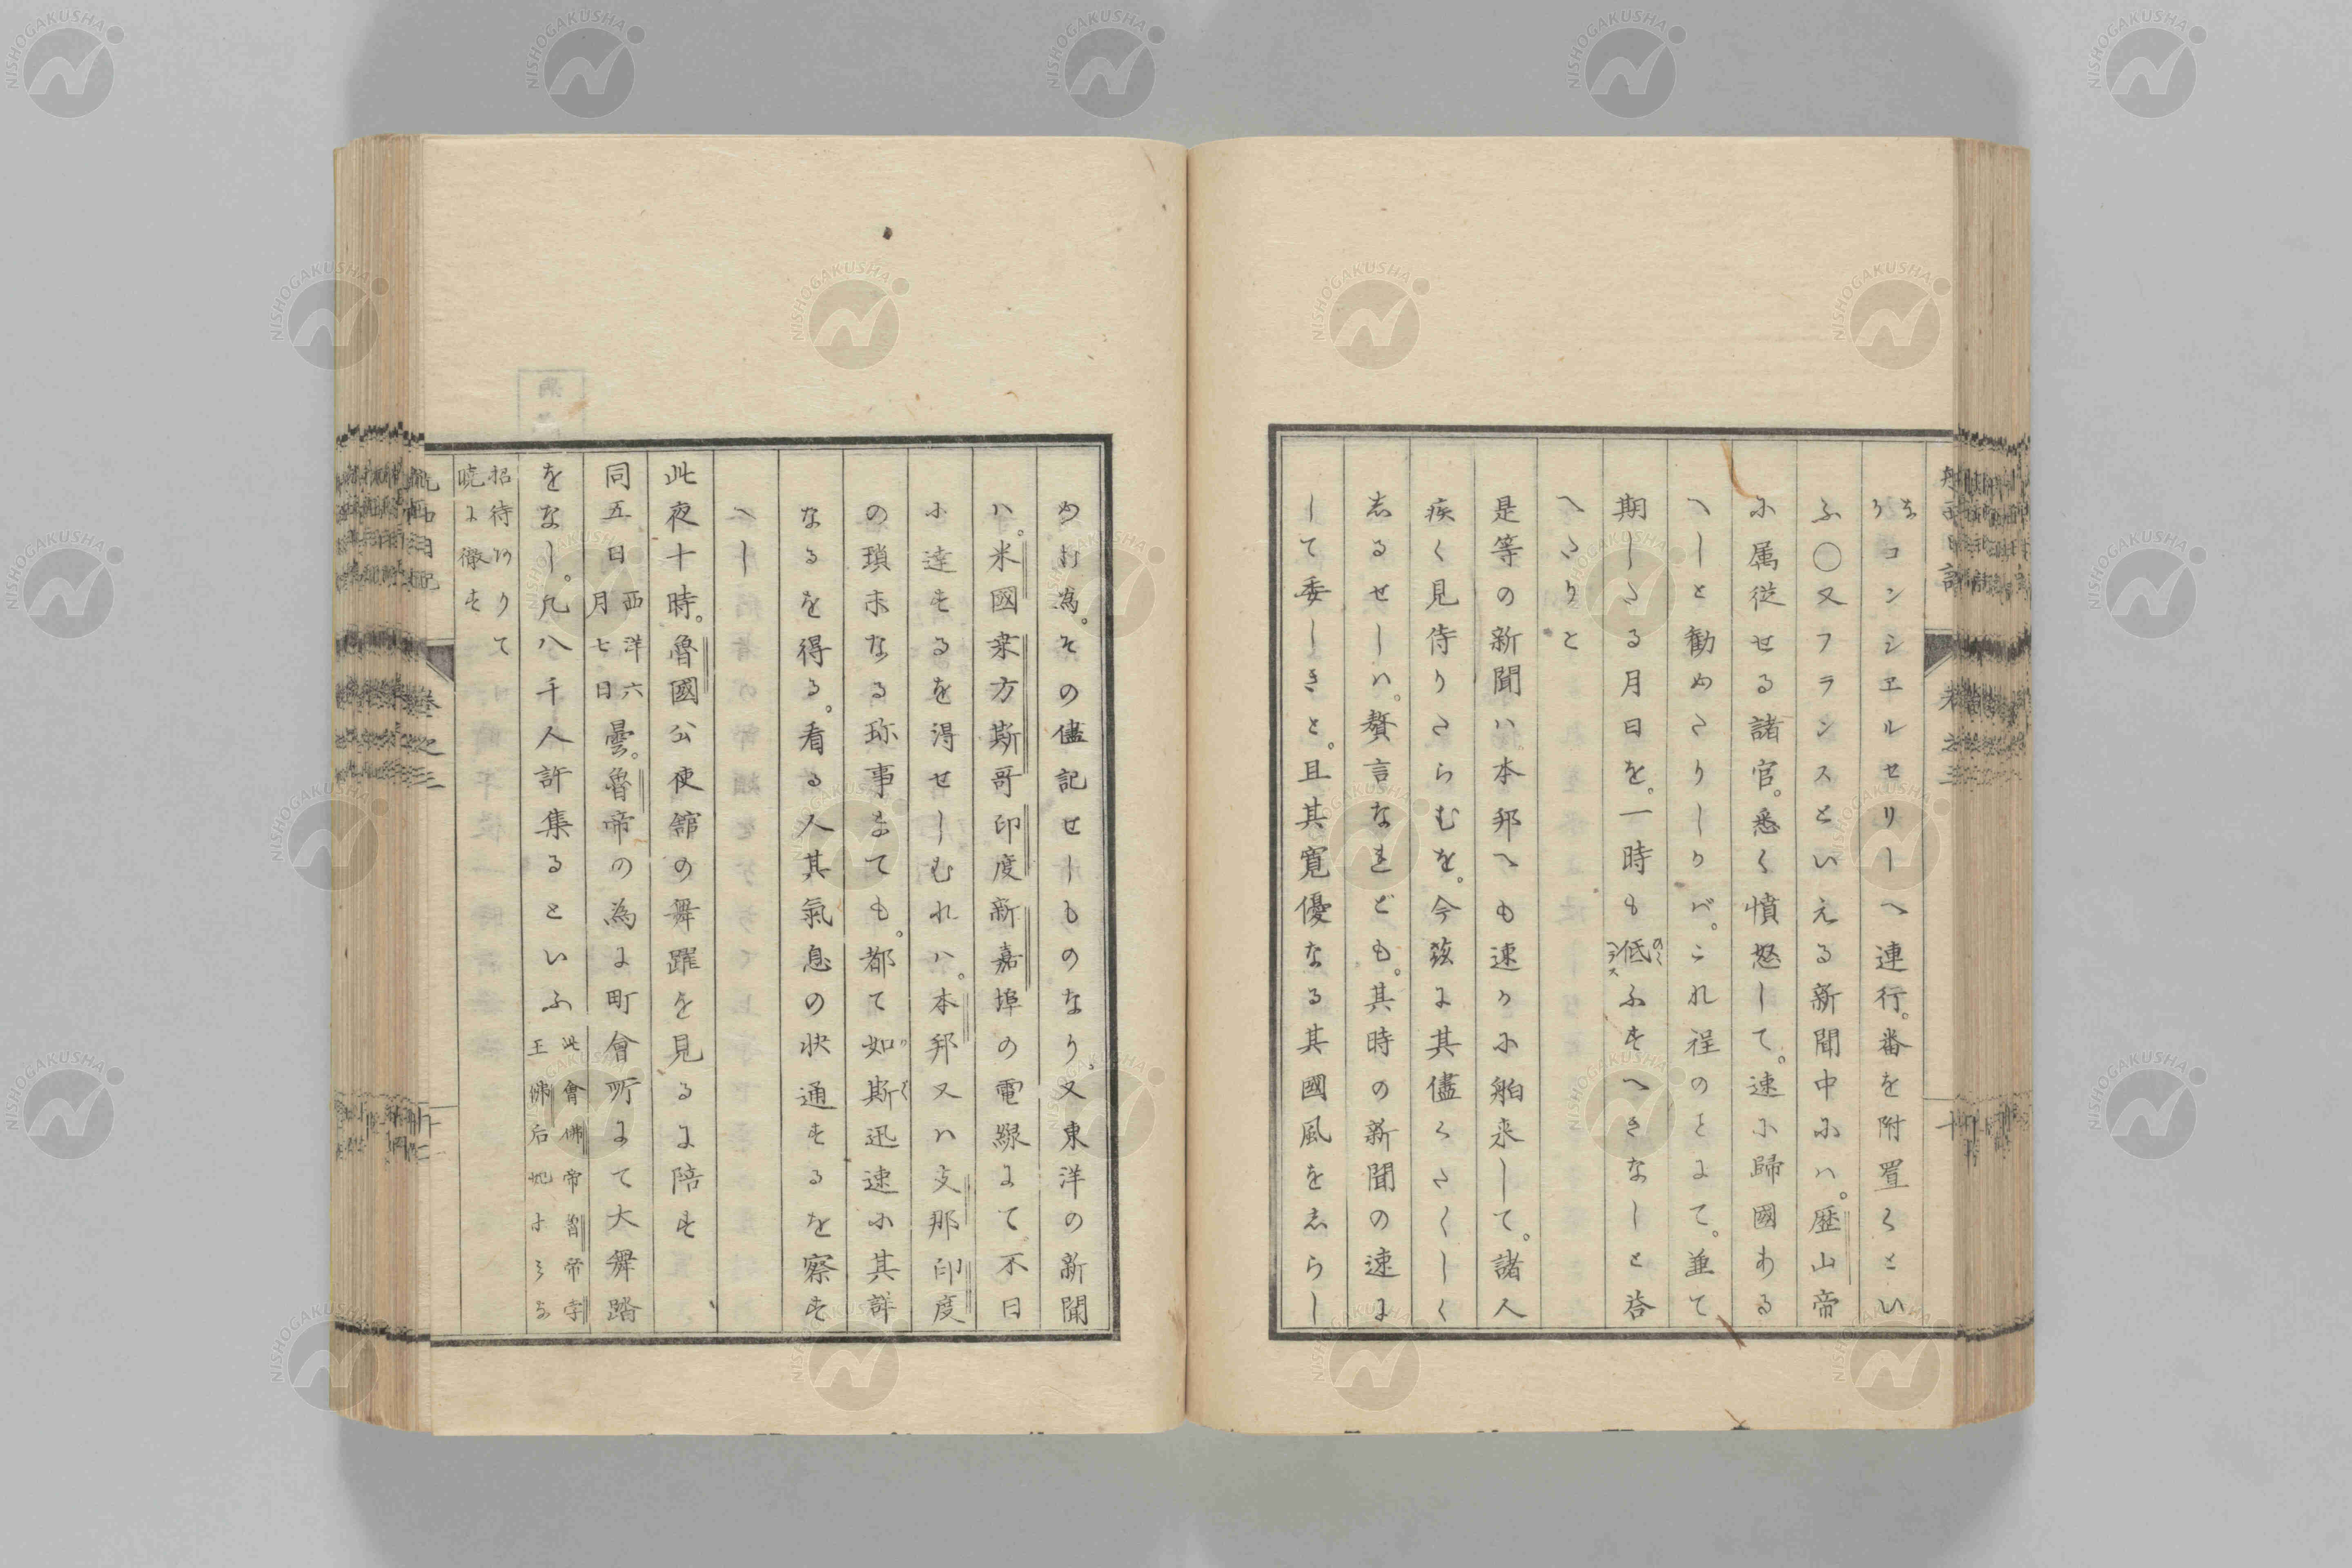 まりコンシヱルセリーへ連行。番を附置くとい
ふ〇又フランスといえる新聞中ハ。歴山帝
に属従せる諸官。悉く憤怒して。速に歸國ある
へしと勧めたりしかバ。これ程のことよて。並て
期したる月日を。一時も低ふすへきなしと答
へたりと
是等の新聞ハ。本邦へも速かに舶来して。諸人
疾く見侍りたらむを。今茲に其儘くたくしく
志るせしハ。贅言なれども。其時の新聞の速に
して委しきと。且其寛優なる其國風を志らし
めむ為。その儘記せしものなり。又東洋の新聞
ハ。米國桒方斯哥印度新嘉埠の電線にて。不日
に達するを得せしむれハ。本邦又ハ支那印度
の瑣末なる珎事までも。都て如斯迅速に其詳
なるを得る。看る人其氣息の状通するを察す
へし
此夜十時。魯國公使舘の舞躍を見るに陪す
同五日西洋六月七日曇。魯帝の為に町會所にて大舞踏
をなし。凡八千人許集るといふ此會佛帝魯帝孛王佛后妃よりな
招待ありて暁に徹す
航西日記
巻之三
NISHOGAKUSHA